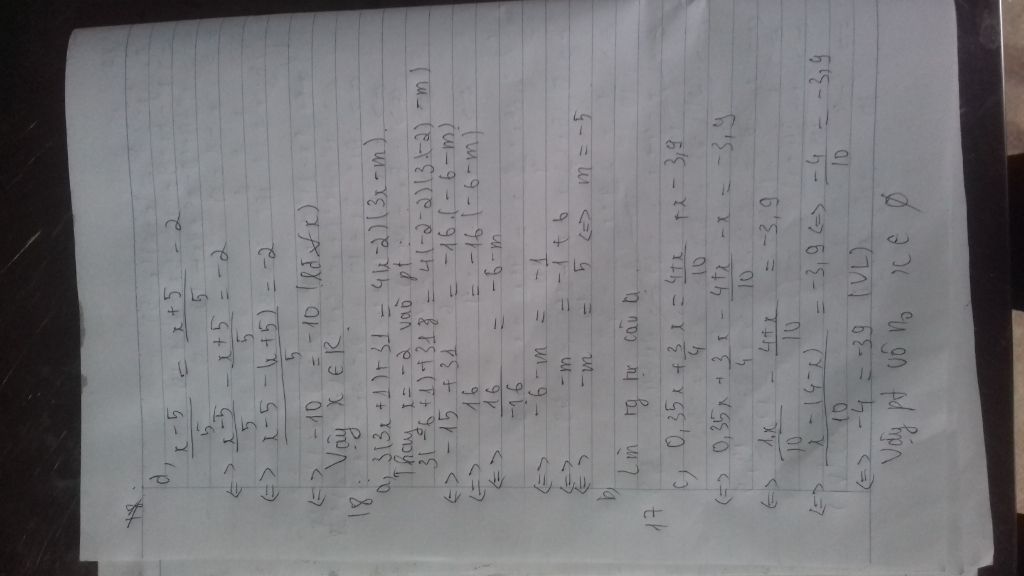 18.
d, x-5/5 = x+5/5 - 2
<=> x-5/5 - x+5/5 = -2
<=> x-5-(x+5)/5 = -2
<=> -10 = -10 (lđ ∀x)
Vậy x ∈ R
18:
a, 3(3x+1)+31 = 4(x-2)(3x-m)
Thay x = -2 vào pt:
3(-6+1)+31 = 4(-2-2)(3.-2)-m)
<=> -15+31 = -16(-6-m)
<=> 16 = -16(-6-m)
<=> 16/-16 = -6-m
<=> -6-m = -1
<=> -m = -1+6
<=> -m = 5 <=> m = -5
b,
Làm tg tự câu a
17
c, 0,35x + 3/4 x = 4+x/10 + x - 3,9
<=> 0,35x + 3/4 x - 4+x/10 - x = -3,9
<=> 1x/10 - 4+x/10 = -3,9
<=> x-(4-x)/10 = -3,9 <=> -4/10 = -3,9
<=> -4 = -39 (VL)
Vậy pt vô no x ∈ ∅